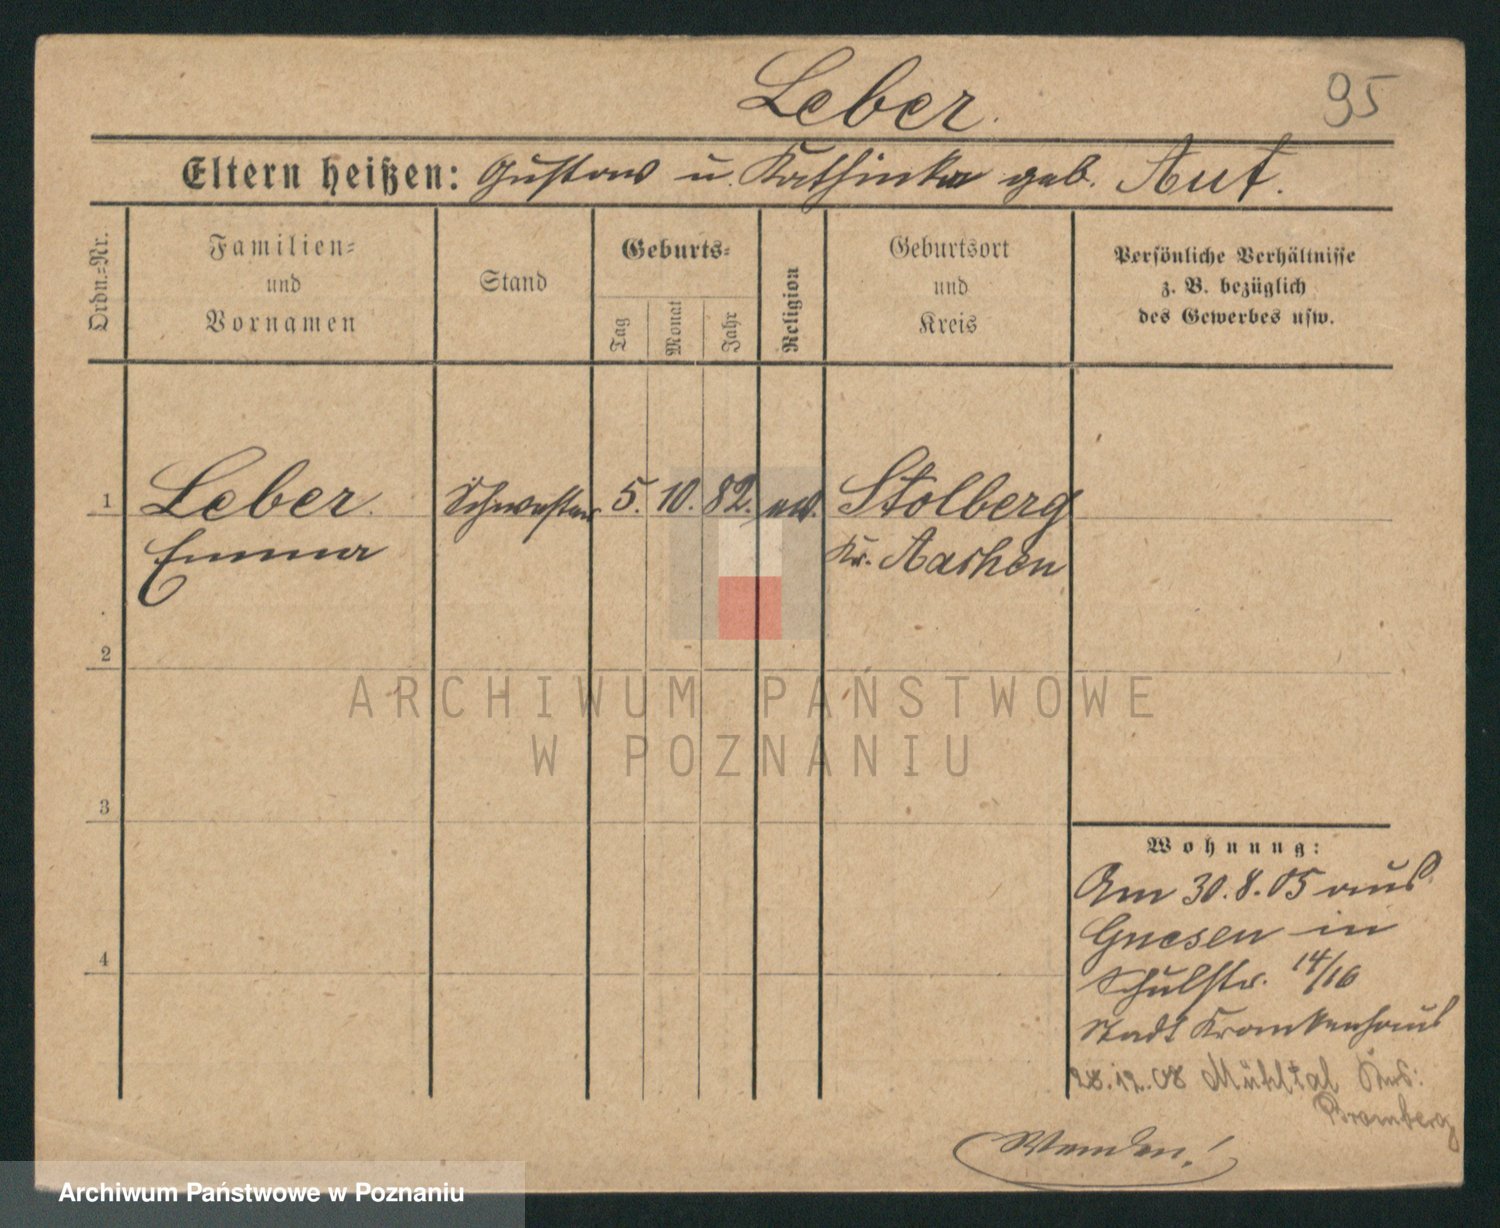 Leber.
95
Eltern heißen: Gustav u. Kathinka geb. Auf.
Ordn.=Nr.
Familien=
und
Vornamen
Stand
Geburts=
Tag
Monat
Jahr
Religion
Geburtsort
und
Kreis
Persönliche Verhältnisse
z. B. bezüglich
des Gewerbes usw.
1 Leber. Schwester 5. 10. 82. ev. Stolberg
Emma Kr. Aachen
2
3
4
Wohnung:
Am 30.8.05 aus
Gnesen in
Schulstr. 14/16
Stadt Krankenhaus
28.12.08 Mühltal
Bromberg
Wenden!
ARCHIWUM PAŃSTWOWE
W POZNANIU
Archiwum Państwowe w Poznaniu